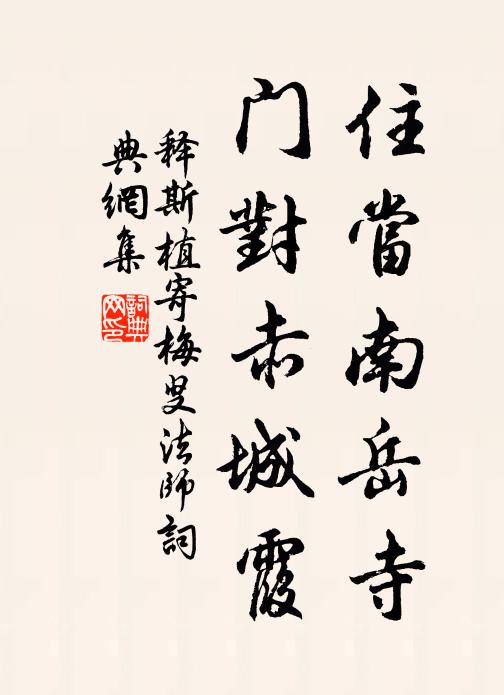 住當南岳寺
門對赤城霞
释斯植寄梅叟法師詞
典網集
詞典网印